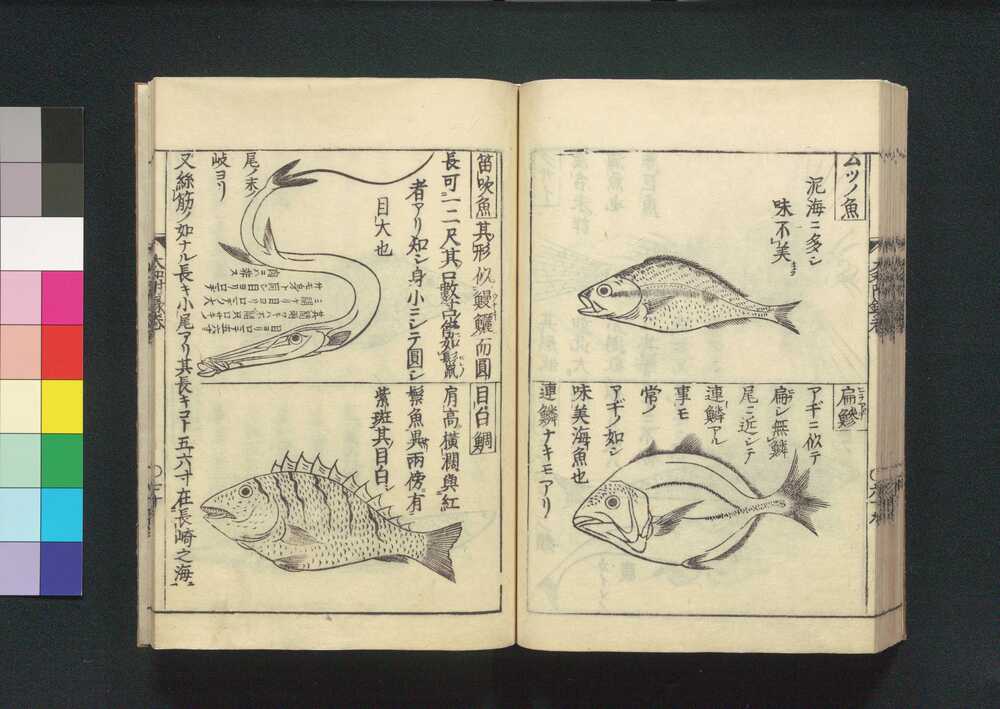 ムツノ魚
泥海ニ多シ
味不美
扁鰺
アギニ似テ
扁シ無鱗
尾ニ近シテ
連鱗アル
事モ
常ノ
アギノ如シ
味美海魚也
連鱗ナキモアリ
笛吹魚其形似鰻鱺而圓
長可一二尺其口數寸
者アリ知シ身小ニシテ圓シ
目大也
尾ノ末ノ
岐ヨリ
又絲筋ノ如ナル長キ小尾アリ其長キコト五六寸在長崎之海
目白鯛
肩高橫濶與紅
鬃魚異兩傍有
紫斑其目白